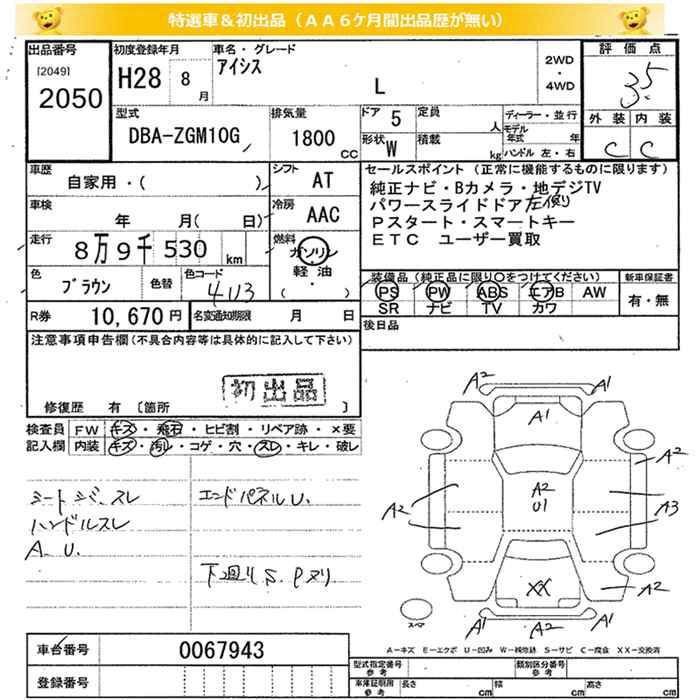 特選車&初出品(AA6ケ月間出品歴が無い)
出品番号
[2049]
2050
初度登録年月
H28 8 月
車名・グレード
アイシス
L
2WD
・
4WD
評価点
3.5
外装 内装
C C
型式
DBA-ZGM10G
排気量
1800 CC
ドア 5
形状 W
定員 人
積載 kg
ディーラー・並行
モデル年式 年
ハンドル 左・右
車歴
自家用・( )
シフト AT
車検
年 月( 日)
冷房 AAC
走行
8万9千530 km
燃料
ガソリン
・
軽・油
( )
色
ブラウン
色替
色コード
4U3
R券 10,670 円
名変通知期限 月 日
セールスポイント(正常に機能するものに限ります)
純正ナビ・Bカメラ・地デジTV
パワースライドドア左側
Pスタート・スマートキー
ETC ユーザー買取
装備品(純正品に限り○をつけてください)
PS PW ABS エアB AW
SR ナビ TV カワ
新車保証書
有・無
後日品
注意事項申告欄(不具合内容等は具体的に記入して下さい)
初出品
修復歴 有 [箇所 ]
検査員記入欄
FW キズ・飛石・ヒビ割・リペア跡・×要
内装 キズ・汚レ・コゲ・穴・スレ・キレ・破レ
シートシミ、スレ
ハンドルスレ
A. U.
エンドパネルU.
下回りS. Pヌリ
A2 A1
A1
A2
A2
A2
U1
A3
A2
XX
A2
A1 A2 A1
スペア
A−キズ E−エクボ U−凹み W−補修跡 S−サビ C−腐食 XX−交換済
車台番号 0067943
登録番号
型式指定番号 参考
類別区分番号 参考
車庫証明用 参考
長さ cm 幅 cm 高さ cm